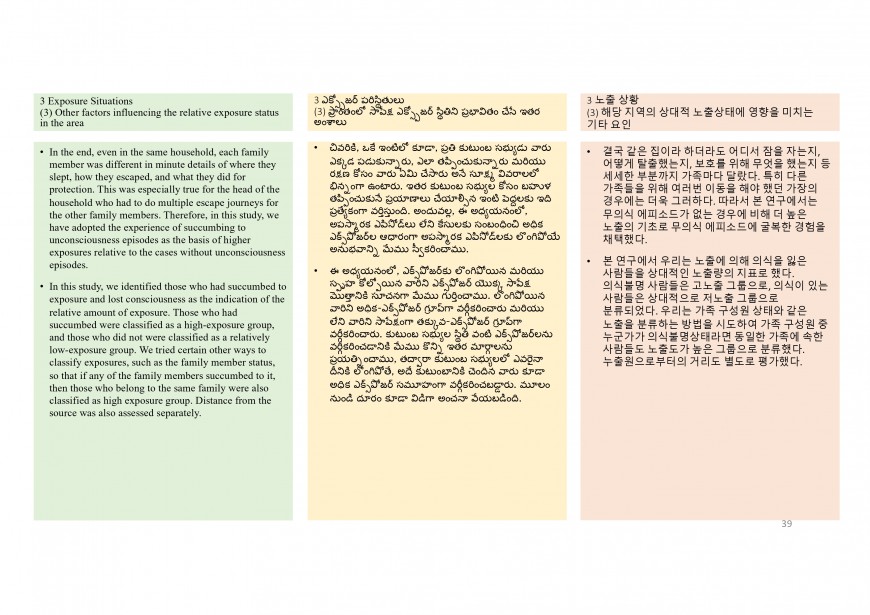 3 Exposure Situations
(3) Other factors influencing the relative exposure status
in the area
• In the end, even in the same household, each family
member was different in minute details of where they
slept, how they escaped, and what they did for
protection. This was especially true for the head of the
household who had to do multiple escape journeys for
the other family members. Therefore, in this study, we
have adopted the experience of succumbing to
unconsciousness episodes as the basis of higher
exposures relative to the cases without unconsciousness
episodes.
• In this study, we identified those who had succumbed to
exposure and lost consciousness as the indication of the
relative amount of exposure. Those who had
succumbed were classified as a high-exposure group,
and those who did not were classified as a relatively
low-exposure group. We tried certain other ways to
classify exposures, such as the family member status,
so that if any of the family members succumbed to it,
then those who belong to the same family were also
classified as high exposure group. Distance from the
source was also assessed separately.
3 ఎక్స్పోజర్ పరిస్థితులు
(3) ప్రాంతంలో సాపేక్ష ఎక్స్పోజర్ స్థితిని ప్రభావితం చేసే ఇతర
అంశాలు
• చివరికి, ఒకే ఇంటిలో కూడా, ప్రతి కుటుంబ సభ్యుడు వారు
ఎక్కడ పడుకున్నారు, ఎలా తప్పించుకున్నారు మరియు
రక్షణ కోసం వారు ఏమి చేసారు అనే సూక్ష్మ వివరాలలో
భిన్నంగా ఉంటారు. ఇతర కుటుంబ సభ్యుల కోసం బహుళ
తప్పించుకునే ప్రయాణాలు చేయాల్సిన ఇంటి పెద్దలకు ఇది
ప్రత్యేకంగా వర్తిస్తుంది. అందువల్ల, ఈ అధ్యయనంలో,
అపస్మారక ఎపిసోడ్‌లు లేని కేసులకు సంబంధించి అధిక
ఎక్స్‌పోజర్‌ల ఆధారంగా అపస్మారక ఎపిసోడ్‌లకు లొంగిపోయే
అనుభవాన్ని మేము స్వీకరించాము.
• ఈ అధ్యయనంలో, ఎక్స్‌పోజర్‌కు లొంగిపోయిన మరియు
స్పృహ కోల్పోయిన వారిని ఎక్స్‌పోజర్ యొక్క సాపేక్ష
మొత్తానికి సూచనగా మేము గుర్తించాము. లొంగిపోయిన
వారిని అధిక-ఎక్స్‌పోజర్ గ్రూప్‌గా వర్గీకరించారు మరియు
లేని వారిని సాపేక్షంగా తక్కువ-ఎక్స్‌పోజర్ గ్రూప్‌గా
వర్గీకరించారు. కుటుంబ సభ్యుల స్థితి వంటి ఎక్స్‌పోజర్‌లను
వర్గీకరించడానికి మేము కొన్ని ఇతర మార్గాలను
ప్రయత్నించాము, తద్వారా కుటుంబ సభ్యులలో ఎవరైనా
దీనికి లొంగిపోతే, అదే కుటుంబానికి చెందిన వారు కూడా
అధిక ఎక్స్‌పోజర్ సమూహంగా వర్గీకరించబడ్డారు. మూలం
నుండి దూరం కూడా విడిగా అంచనా వేయబడింది.
3 노출 상황
(3) 해당 지역의 상대적 노출상태에 영향을 미치는
기타 요인
• 결국 같은 집이라 하더라도 어디서 잠을 자는지,
어떻게 탈출했는지, 보호를 위해 무엇을 했는지 등
세세한 부분까지 가족마다 달랐다. 특히 다른
가족들을 위해 여러번 이동을 해야 했던 가장의
경우에는 더욱 그러하다. 따라서 본 연구에서는
무의식 에피소드가 없는 경우에 비해 더 높은
노출의 기초로 무의식 에피소드에 굴복한 경험을
채택했다.
• 본 연구에서 우리는 노출에 의해 의식을 잃은
사람들을 상대적인 노출량의 지표로 했다.
의식불명 사람들은 고노출 그룹으로, 의식이 있는
사람들은 상대적으로 저노출 그룹으로
분류되었다. 우리는 가족 구성원 상태와 같은
노출을 분류하는 방법을 시도하여 가족 구성원 중
누군가가 의식불명상태라면 동일한 가족에 속한
사람들도 노출도가 높은 그룹으로 분류했다.
누출원으로부터의 거리도 별도로 평가했다.
39